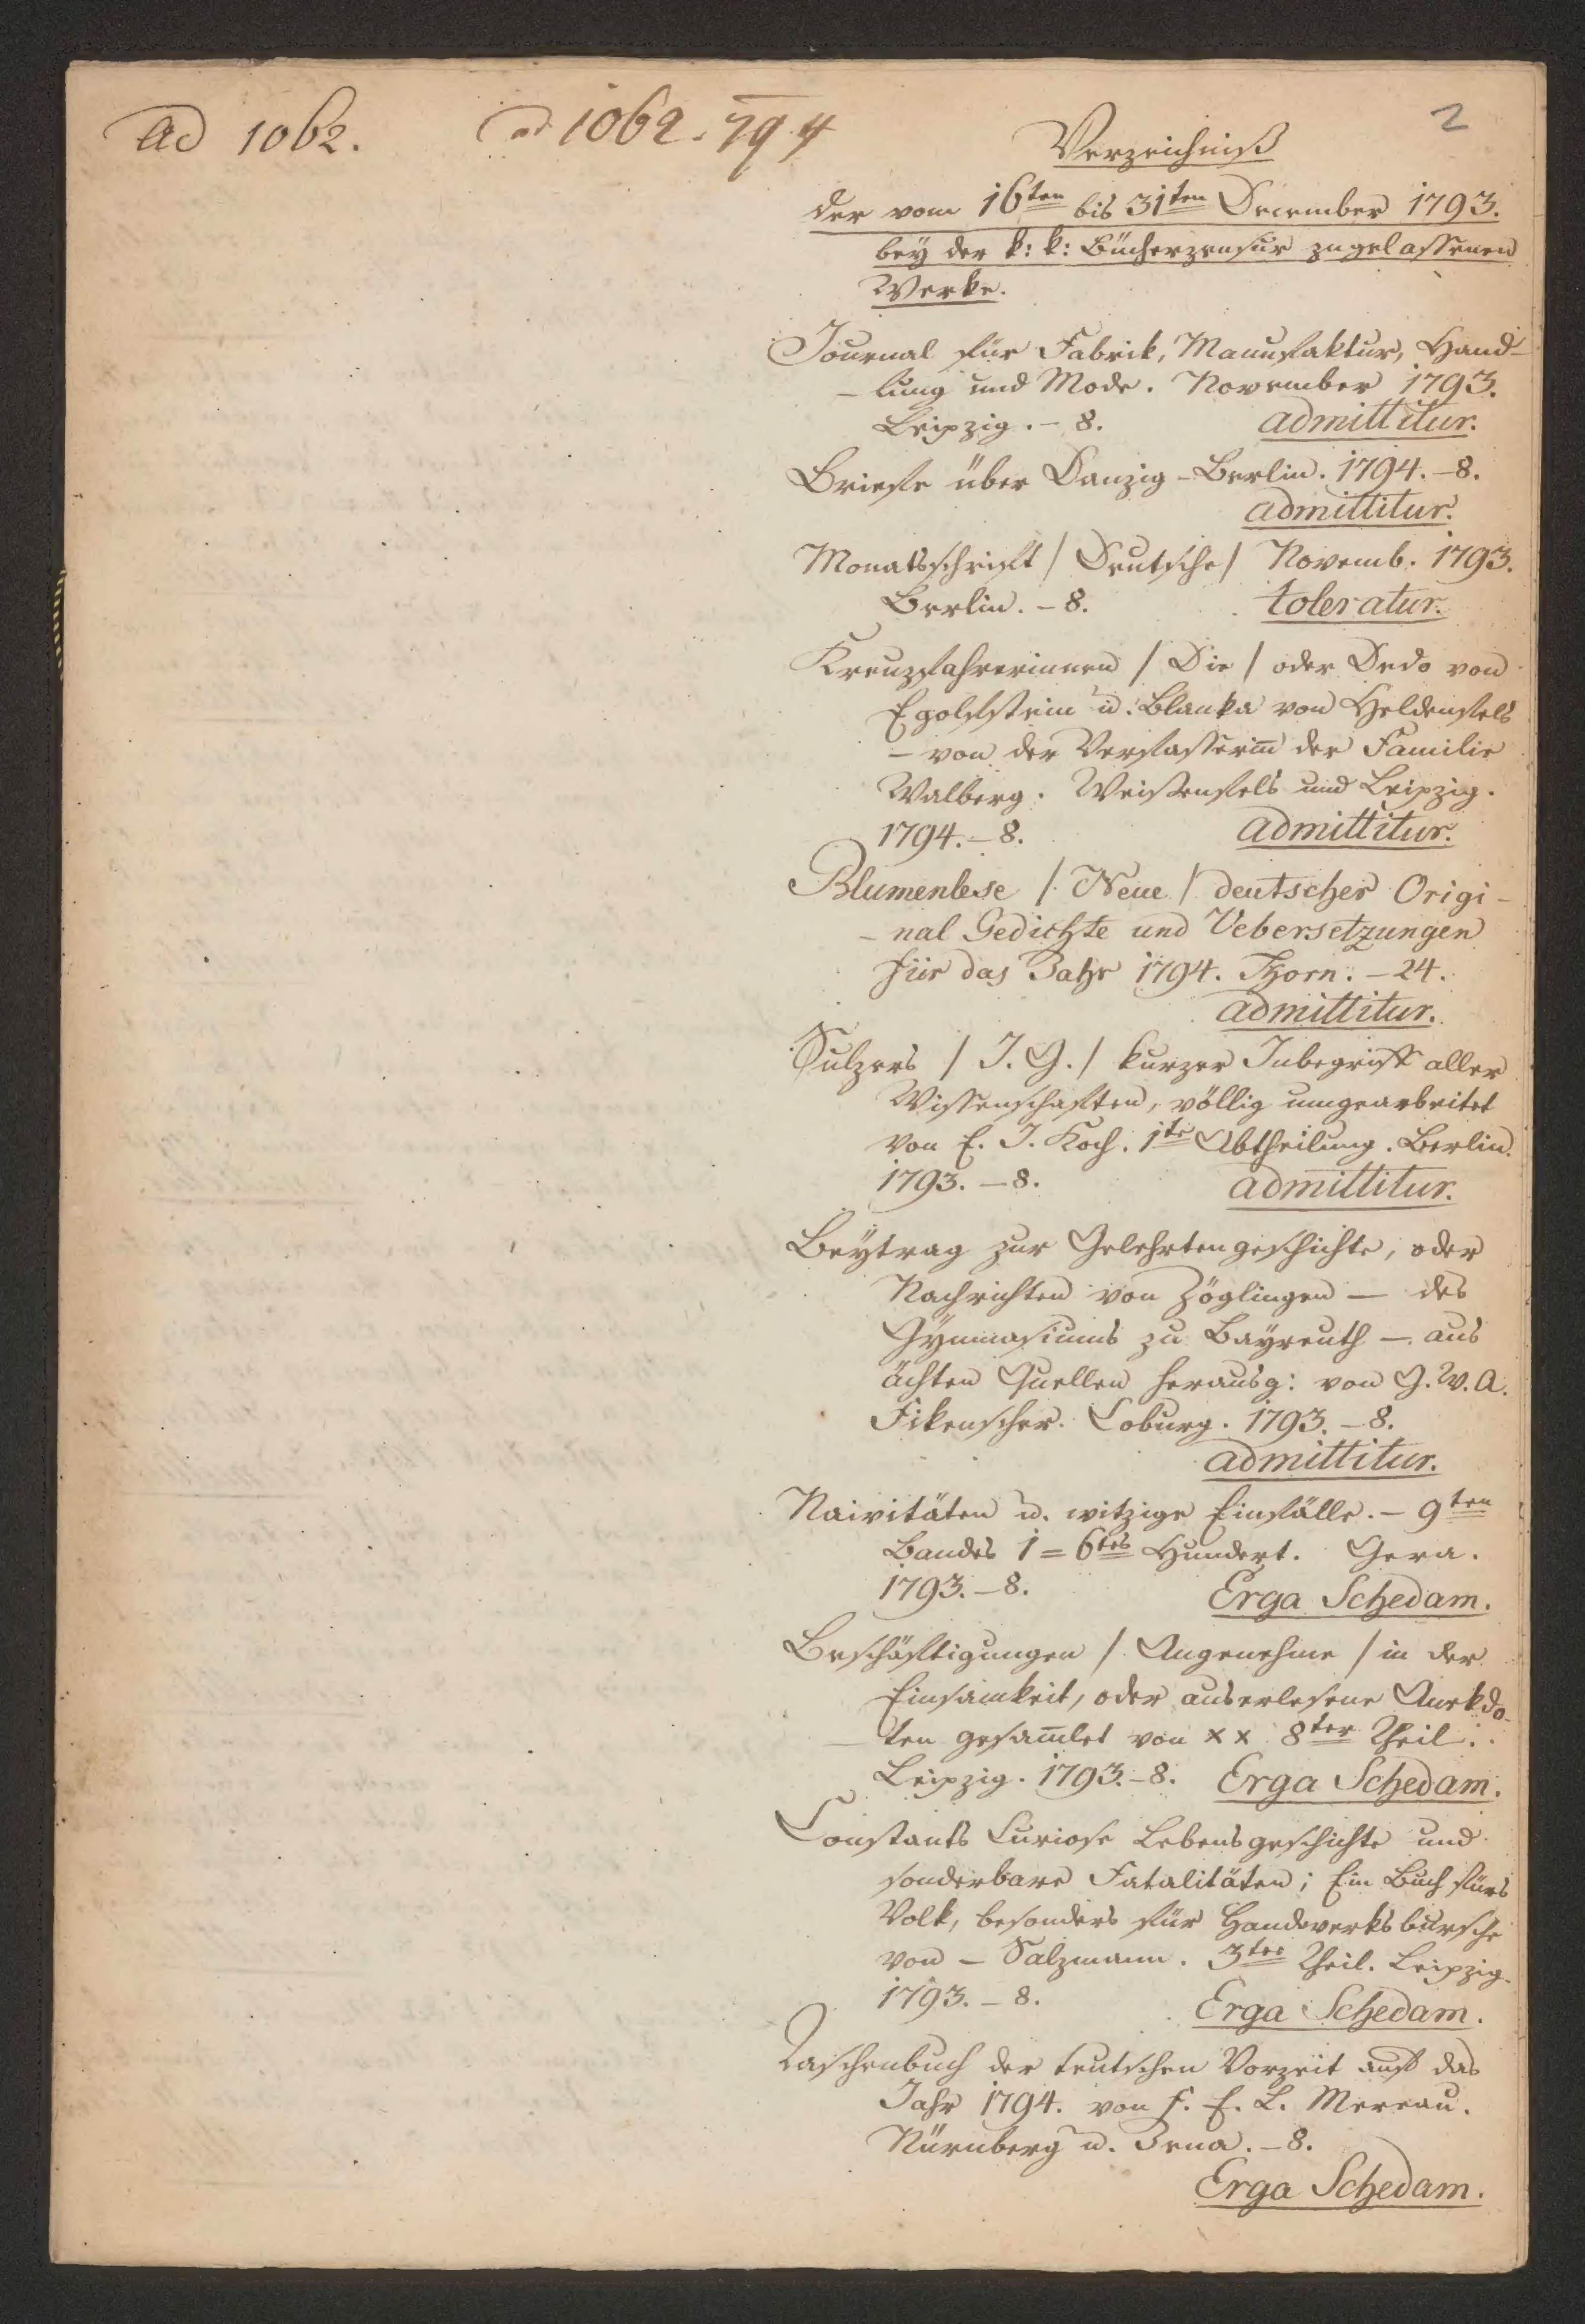 Ad 1062.
ad 1062. 794
2
Verzeichniß
der vom 16ten bis 31ten December 1793.
bey der k: k: Bücherzensur zugelassenen
Werke.
Journal für Fabrik, Manufaktur, Hand-
- lung und Mode. November 1793.
Leipzig. - 8. admittitur.
Briefe über Danzig - Berlin. 1794. - 8.
admittitur.
Monatsschrift / Deutsche / Novemb. 1793.
Berlin. - 8. toleratur.
Kreuzfahrerinnen / Die / oder Dedo von
Egolfstein u. Blanka von Heldenfels
- von der Verfasserin̅ der Familie
Walberg. Weissenfels und Leipzig.
1794. - 8. admittitur.
Blumenlese / Neue / deutscher Origi-
- nal Gedichte und Uebersetzungen
für das Jahr 1794. Thorn. - 24.
admittitur.
Sulzers / J. G. / kurzer Inbegriff aller
Wissenschaften, völlig umgearbeitet
von E. J. Koch. 1te Abtheilung. Berlin.
1793. - 8. admittitur.
Beytrag zur Gelehrtengeschichte, oder
Nachrichten von Zöglingen — des
Gymnasiums zu Bayreuth — aus
ächten Quellen herausg: von G. W. A.
Fikenscher. Coburg. 1793. - 8.
admittitur.
Naivitäten u. witzige Einfälle. - 9ten
Bandes 1 = 6tes Hundert. Gera.
1793. - 8. Erga Schedam.
Beschäftigungen / Angenehme / in der
Einsamkeit, oder auserlesene Anekdo-
- ten gesam̅let von x x 8ter Theil.
Leipzig. 1793. - 8. Erga Schedam.
Constants Curiose Lebensgeschichte und
sonderbare Fatalitäten; Ein Buch fürs
Volk, besonders für Handwerksbursche
von - Salzmann. 3ter Theil. Leipzig.
1793. - 8. Erga Schedam.
Taschenbuch der teutschen Vorzeit auf das
Jahr 1794. von F. E. L. Mereau.
Nürnberg u. Jena. - 8.
Erga Schedam.